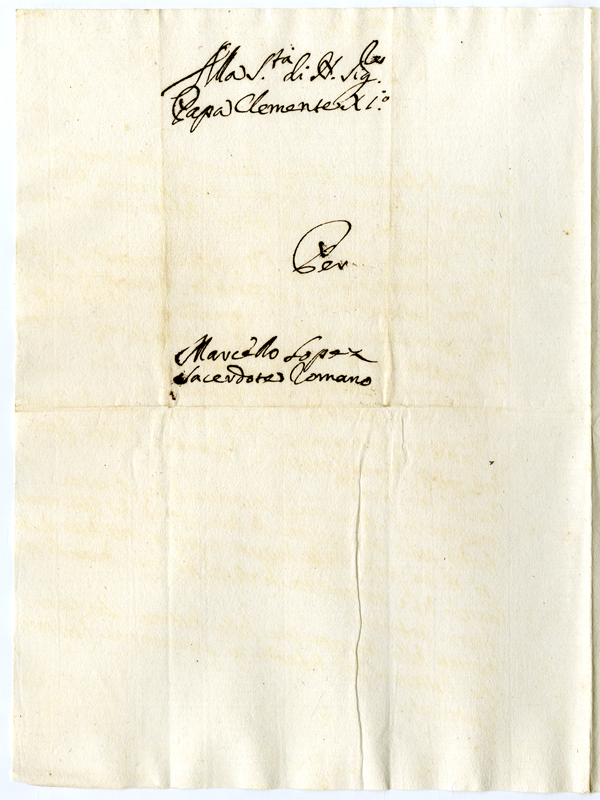 Alla S.tà di N. Sig.re
Papa Clemente XI.o
Per
Marcello Lopez
Sacerdote Romano